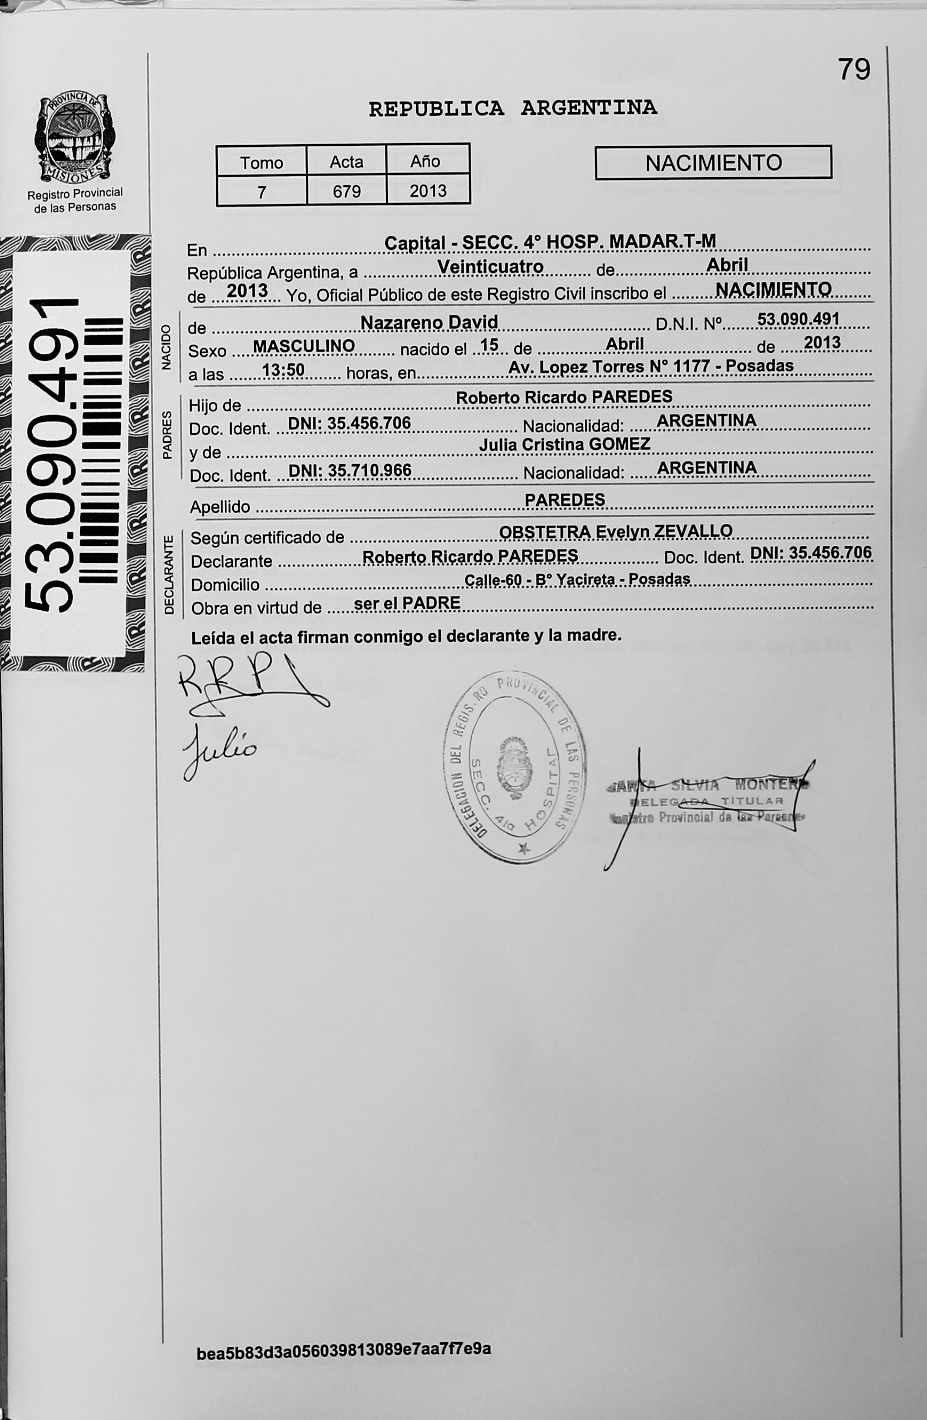 79
PROVINCIA DE
MISIONES
Registro Provincial
de las Personas
REPUBLICA ARGENTINA
Tomo Acta Año
7 679 2013
NACIMIENTO
53.090.491
En Capital - SECC. 4° HOSP. MADAR.T-M
República Argentina, a Veinticuatro de Abril
de 2013 Yo, Oficial Público de este Registro Civil inscribo el NACIMIENTO
NACIDO
de Nazareno David D.N.I. Nº 53.090.491
Sexo MASCULINO nacido el 15 de Abril de 2013
a las 13:50 horas, en Av. Lopez Torres N° 1177 - Posadas
PADRES
Hijo de Roberto Ricardo PAREDES
Doc. Ident. DNI: 35.456.706 Nacionalidad: ARGENTINA
y de Julia Cristina GOMEZ
Doc. Ident. DNI: 35.710.966 Nacionalidad: ARGENTINA
Apellido PAREDES
DECLARANTE
Según certificado de OBSTETRA Evelyn ZEVALLO
Declarante Roberto Ricardo PAREDES Doc. Ident. DNI: 35.456.706
Domicilio Calle-60 - B° Yacireta - Posadas
Obra en virtud de ser el PADRE
Leída el acta firman conmigo el declarante y la madre.
RRP
Julio
DELEGACION DEL REGISTRO PROVINCIAL DE LAS PERSONAS
SECC. 4ta HOSPITAL
SILVIA MONTERO
DELEGADA TITULAR
Registro Provincial de las Personas
bea5b83d3a056039813089e7aa7f7e9a